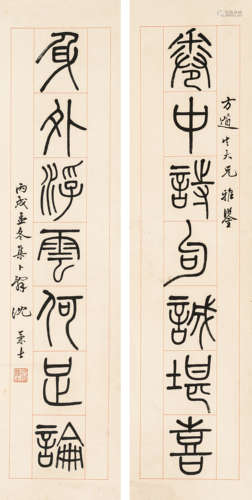 卷中詩句誠堪喜
方大兄 雅鑒
身外浮雲何足論
丙戌孟冬集卜 沈兼士